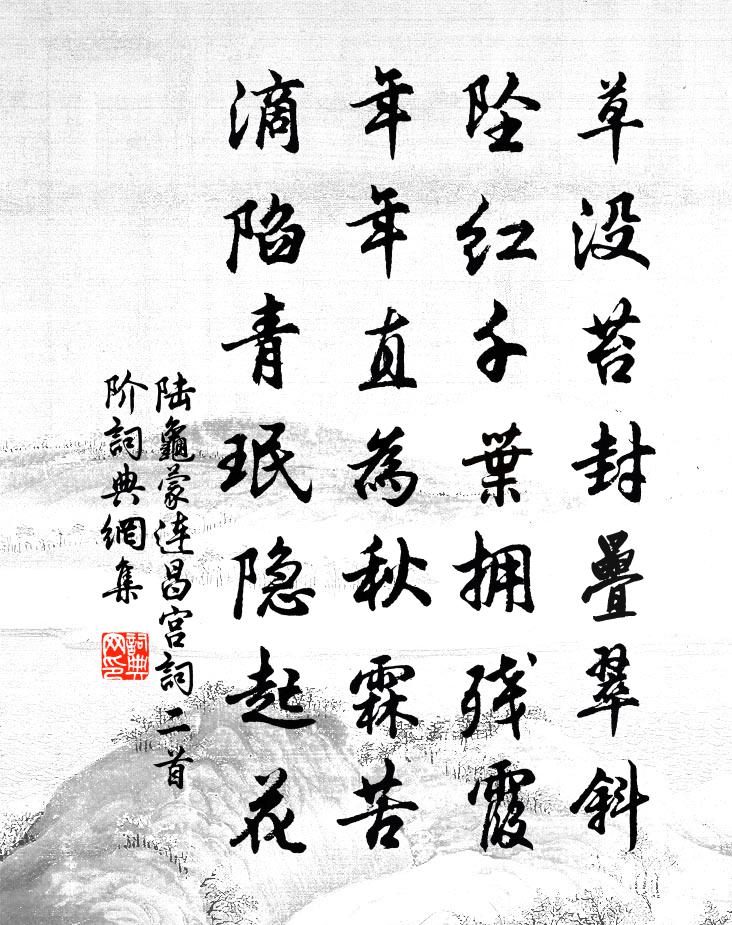 草没苔封疊翠斜
坠红千葉拥残霞
年年直為秋霖苦
滴陷青珉隐起花
陆龜蒙连昌宫詞二首
阶詞典網集
詞典网印